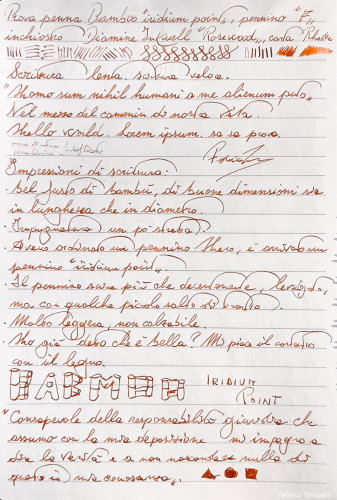 Prova penna Bamboo "iridium point", pennino "F",
inchiostro Diamine Inkwell "Rosewood", carta Rhodia
Scrittura lenta, scrittura veloce.
"Homo sum nihil humani a me alienum puto"
Nel mezzo del cammin di nostra vita.
Hello world. Lorem ipsum. sa sa prova
Impressioni di scrittura:
. Bel fusto di bambù, di buone dimensioni sia
in lunghezza che in diametro.
. Impugnatura un po' stretta.
. Avevo ordinato un pennino Hero, è arrivato un
pennino "iridium point".
. Il pennino scrive più che decentemente,
ma con qualche piccolo salto di tratto.
. Molto leggera, non calzabile.
. Ho già detto che è bella? Mi piace il contatto
con il legno.
E A B M E H
IRIDIUM
POINT
"Consapevole della responsabilità giuridica che
assumo con la mia deposizione mi impegno a
dire la verità e a non nascondere nulla di
quanto di mia conoscenza".